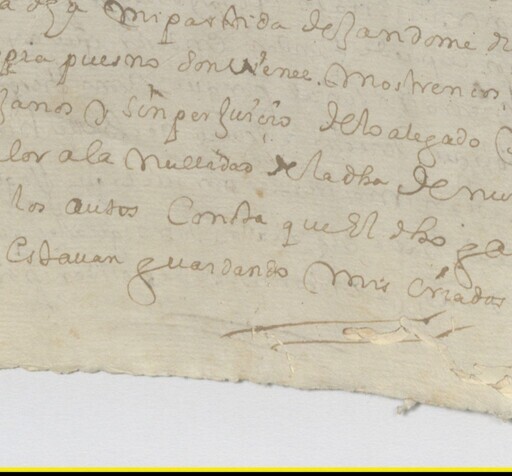 mi partida dejandome
pria pues no son vienes mostrencos
y sin perjuicio de lo alegado
lor a la nullidad de la dha denu
los autos Consta que El dho ga
Estauan guardando mis criados